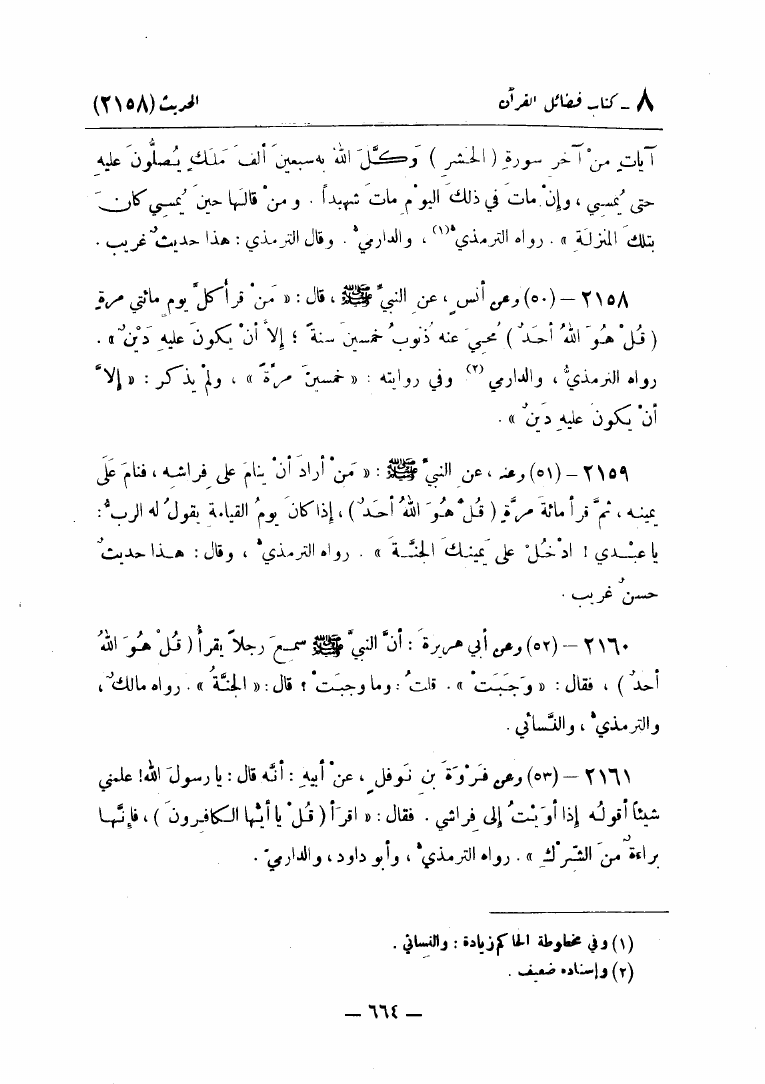 ٨ ـ كتاب فضائل القرآن الحديث (٢١٥٨)
آيات منْ آخرِ سورةِ (الحَشرِ) وَكَّلَ اللهُ به سبعينَ ألفَ مَلَكٍ يُصلُّونَ عليهِ
حتى يُمسي، وإنْ ماتَ في ذلكَ اليوْمِ ماتَ شهيداً . ومنْ قالَها حينَ يُمسي كانَ
بتلكَ المنزلَةِ » . رواه الترمذيُّ(١)، والدارميُّ . وقال الترمذي : هذا حديثٌ غريب .
٢١٥٨ – (٥٠) وعن أنسٍ، عن النبيِّ ﷺ، قال : « مَنْ قرأ كلَّ يومٍ مائتي مرةٍ
(قُلْ هُوَ اللهُ أحَدٌ) مُحِيَ عنه ذُنوبُ خمسينَ سنةً ؛ إلاَّ أنْ يكونَ عليهِ دَيْنٌ » .
رواه الترمذيُّ، والدارمي(٢) وفي روايته : « خمسينَ مرَّةً » ، ولمْ يذكر : « إلاَّ
أنْ يكونَ عليهِ دَينٌ » .
٢١٥٩ – (٥١) وعنه، عن النبيِّ ﷺ : « مَنْ أرادَ أنْ ينامَ على فِراشهِ، فنامَ على
يمينه، ثمَّ قرأ مائةَ مرَّةٍ (قُلْ هُوَ اللهُ أحَدٌ)، إذا كانَ يومُ القيامة يقولُ له الربُّ:
يا عبْدي ! ادْخُلْ على يَمينكَ الجنَّةَ » . رواه الترمذيُّ، وقال : هذا حديثٌ
حسنٌ غريب .
٢١٦٠ – (٥٢) وعن أبي هريرةَ : أنَّ النبيَّ ﷺ سمعَ رجلاً يقرأُ (قُلْ هُوَ اللهُ
أحدٌ) ، فقال : « وَجَبَتْ » . قلتُ : وما وجبَتْ ؟ قال : « الجنَّةُ » . رواه مالكٌ،
والترمذيُّ، والنَّسائي .
٢١٦١ – (٥٣) وعن فَرْوَةَ بن نَوفلٍ، عنْ أبيهِ : أنَّه قال : يا رسولَ الله! علمني
شيئاً أقولُه إذا أوَيْتُ إلى فِراشي . فقال : « اقرَأ (قُلْ يا أيُّها الكافِرونَ)، فإنَّها
براءةٌ منَ الشِّرْكِ » . رواه الترمذيُّ، وأبو داود، والدارميّ .
(١) وفي مخطوطة الحاكم زيادة : والنسائي .
(٢) وإسناده ضعيف .
— ٦٦٤ —